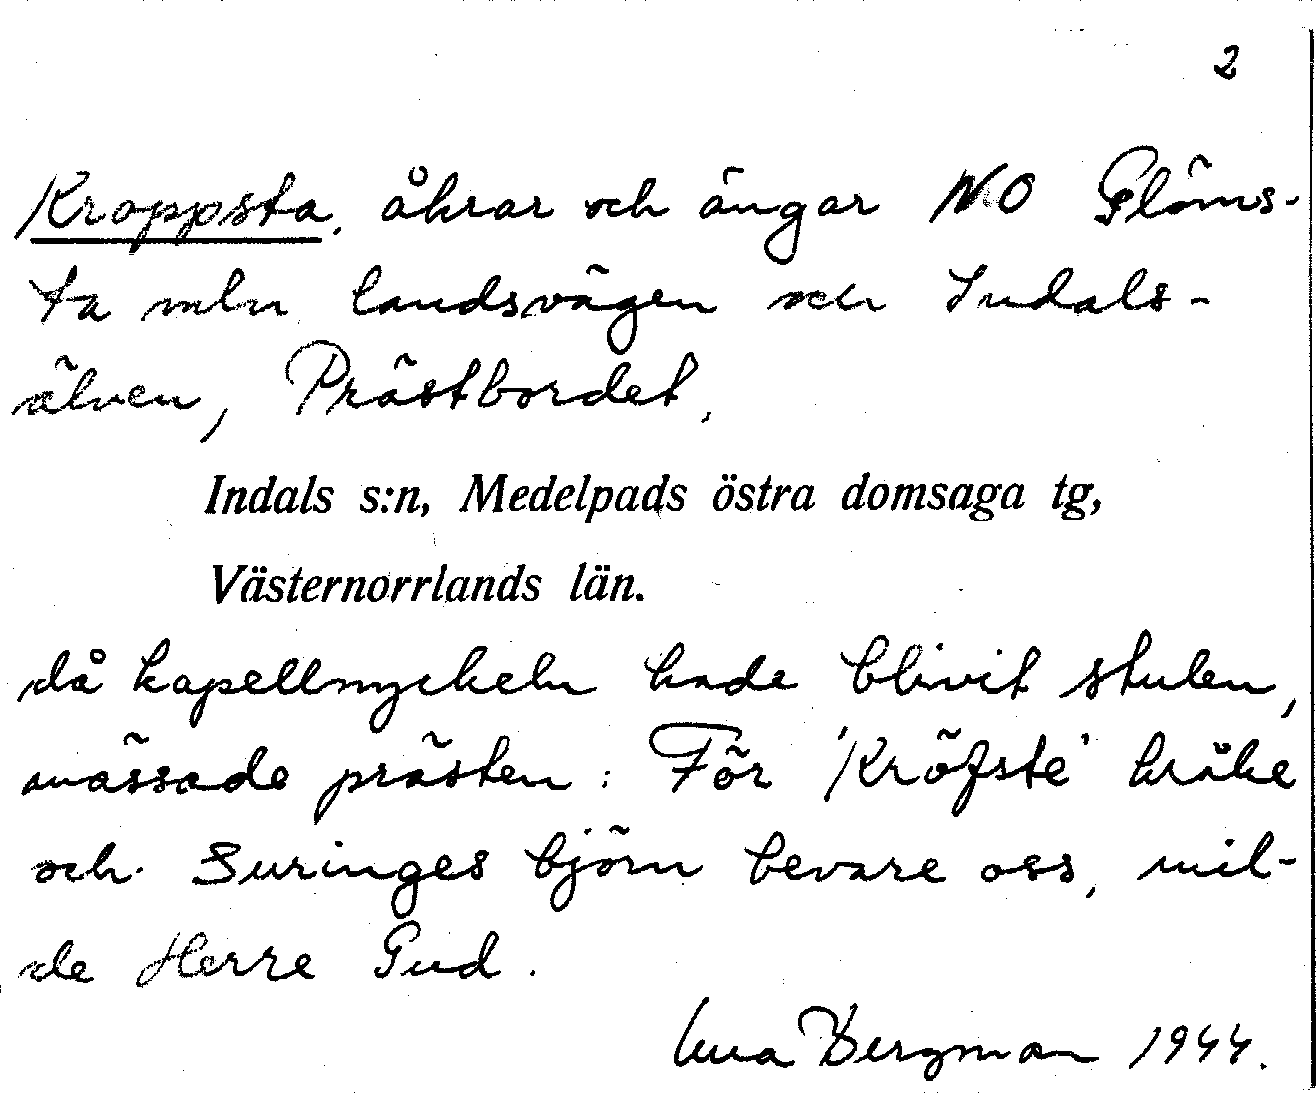 2
Kroppsta, åkrar och ängar NO Glöms-
ta mln landsvägen och Indals-
älven, Prästbordet.
Indals s:n, Medelpads östra domsaga tg,
Västernorrlands län.
då kapellnyckeln hade blivit stulen,
mässade prästen: För 'Kröfste' kråke
och Suringes björn bevare oss, mil-
de Herre Gud.
Bergman 1944.